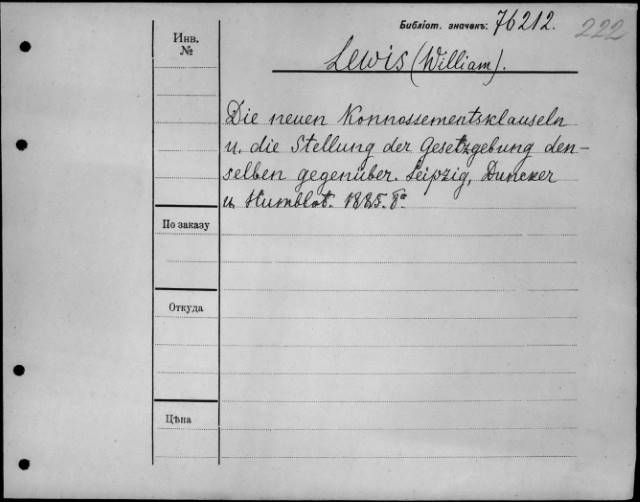 Библіот. значекъ: 76212.
222
Инв.
№
Lewis (William).
Die neuen Konnossementsklauseln
u. die Stellung der Gesetzgebung den-
selben gegenüber. Leipzig, Duncker
u. Humblot. 1885. 8°
По заказу
Откуда
Цѣна